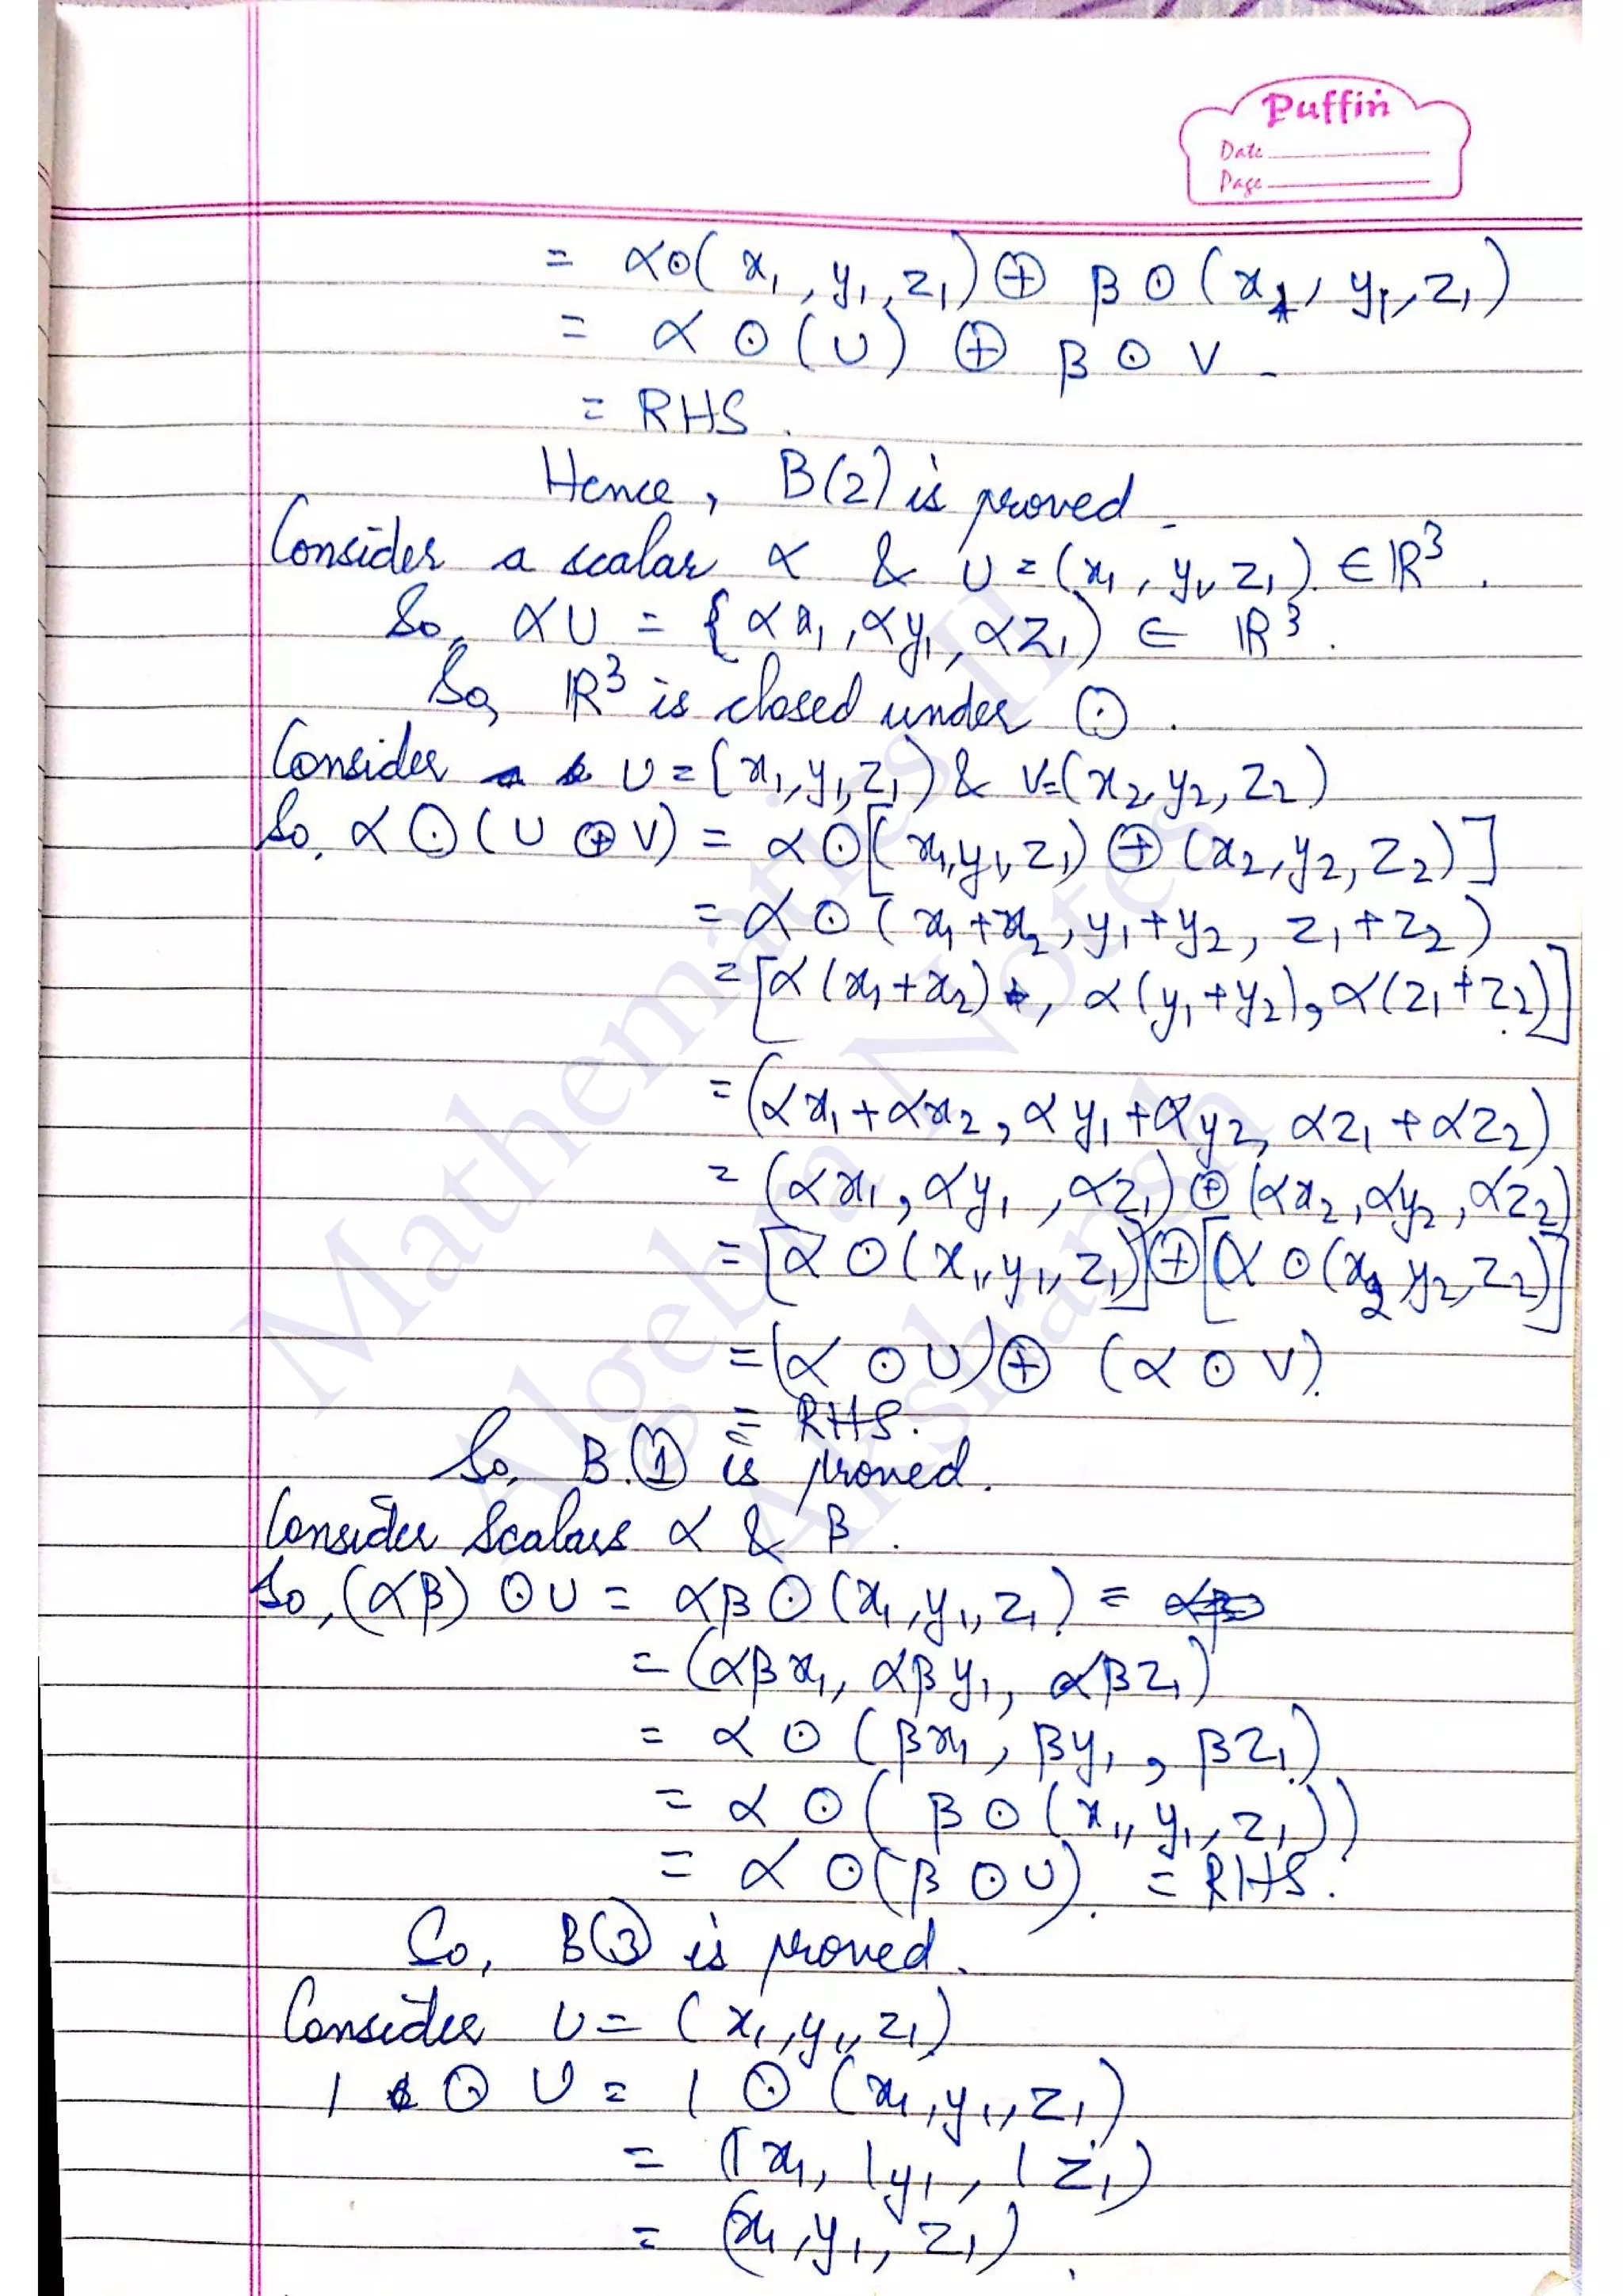 Puffin
Date
Page
= α⊙(x₁, y₁, z₁) ⊕ β ⊙ (x₁, y₁, z₁)
= α ⊙ (U) ⊕ β ⊙ V
= RHS.
Hence, B(2) is proved.
Consider a scalar α & U = (x₁, y₁, z₁) ∈ ℝ³.
So, αU = {αx₁, αy₁, αz₁) ∈ ℝ³.
So, ℝ³ is closed under ⊙.
Consider U = (x₁, y₁, z₁) & V = (x₂, y₂, z₂)
So, α ⊙ (U ⊕ V) = α ⊙ [(x₁, y₁, z₁) ⊕ (x₂, y₂, z₂)]
= α ⊙ (x₁+x₂, y₁+y₂, z₁+z₂)
= [α(x₁+x₂), α(y₁+y₂), α(z₁+z₂)]
= (αx₁+αx₂, αy₁+αy₂, αz₁+αz₂)
= (αx₁, αy₁, αz₁) ⊕ (αx₂, αy₂, αz₂)
= [α ⊙ (x₁, y₁, z₁)] ⊕ [α ⊙ (x₂, y₂, z₂)]
= (α ⊙ U) ⊕ (α ⊙ V)
= RHS.
So, B.① is proved.
Consider Scalars α & β.
So, (αβ) ⊙ U = αβ ⊙ (x₁, y₁, z₁) =
= (αβx₁, αβy₁, αβz₁)
= α ⊙ (βx₁, βy₁, βz₁)
= α ⊙ (β ⊙ (x₁, y₁, z₁))
= α ⊙ (β ⊙ U). = RHS.
So, B(3) is proved.
Consider U = (x₁, y₁, z₁)
1 ⊙ U = 1 ⊙ (x₁, y₁, z₁)
= (1x₁, 1y₁, 1z₁)
= (x₁, y₁, z₁).
Mathematics II
Algebra Notes
Akshansh